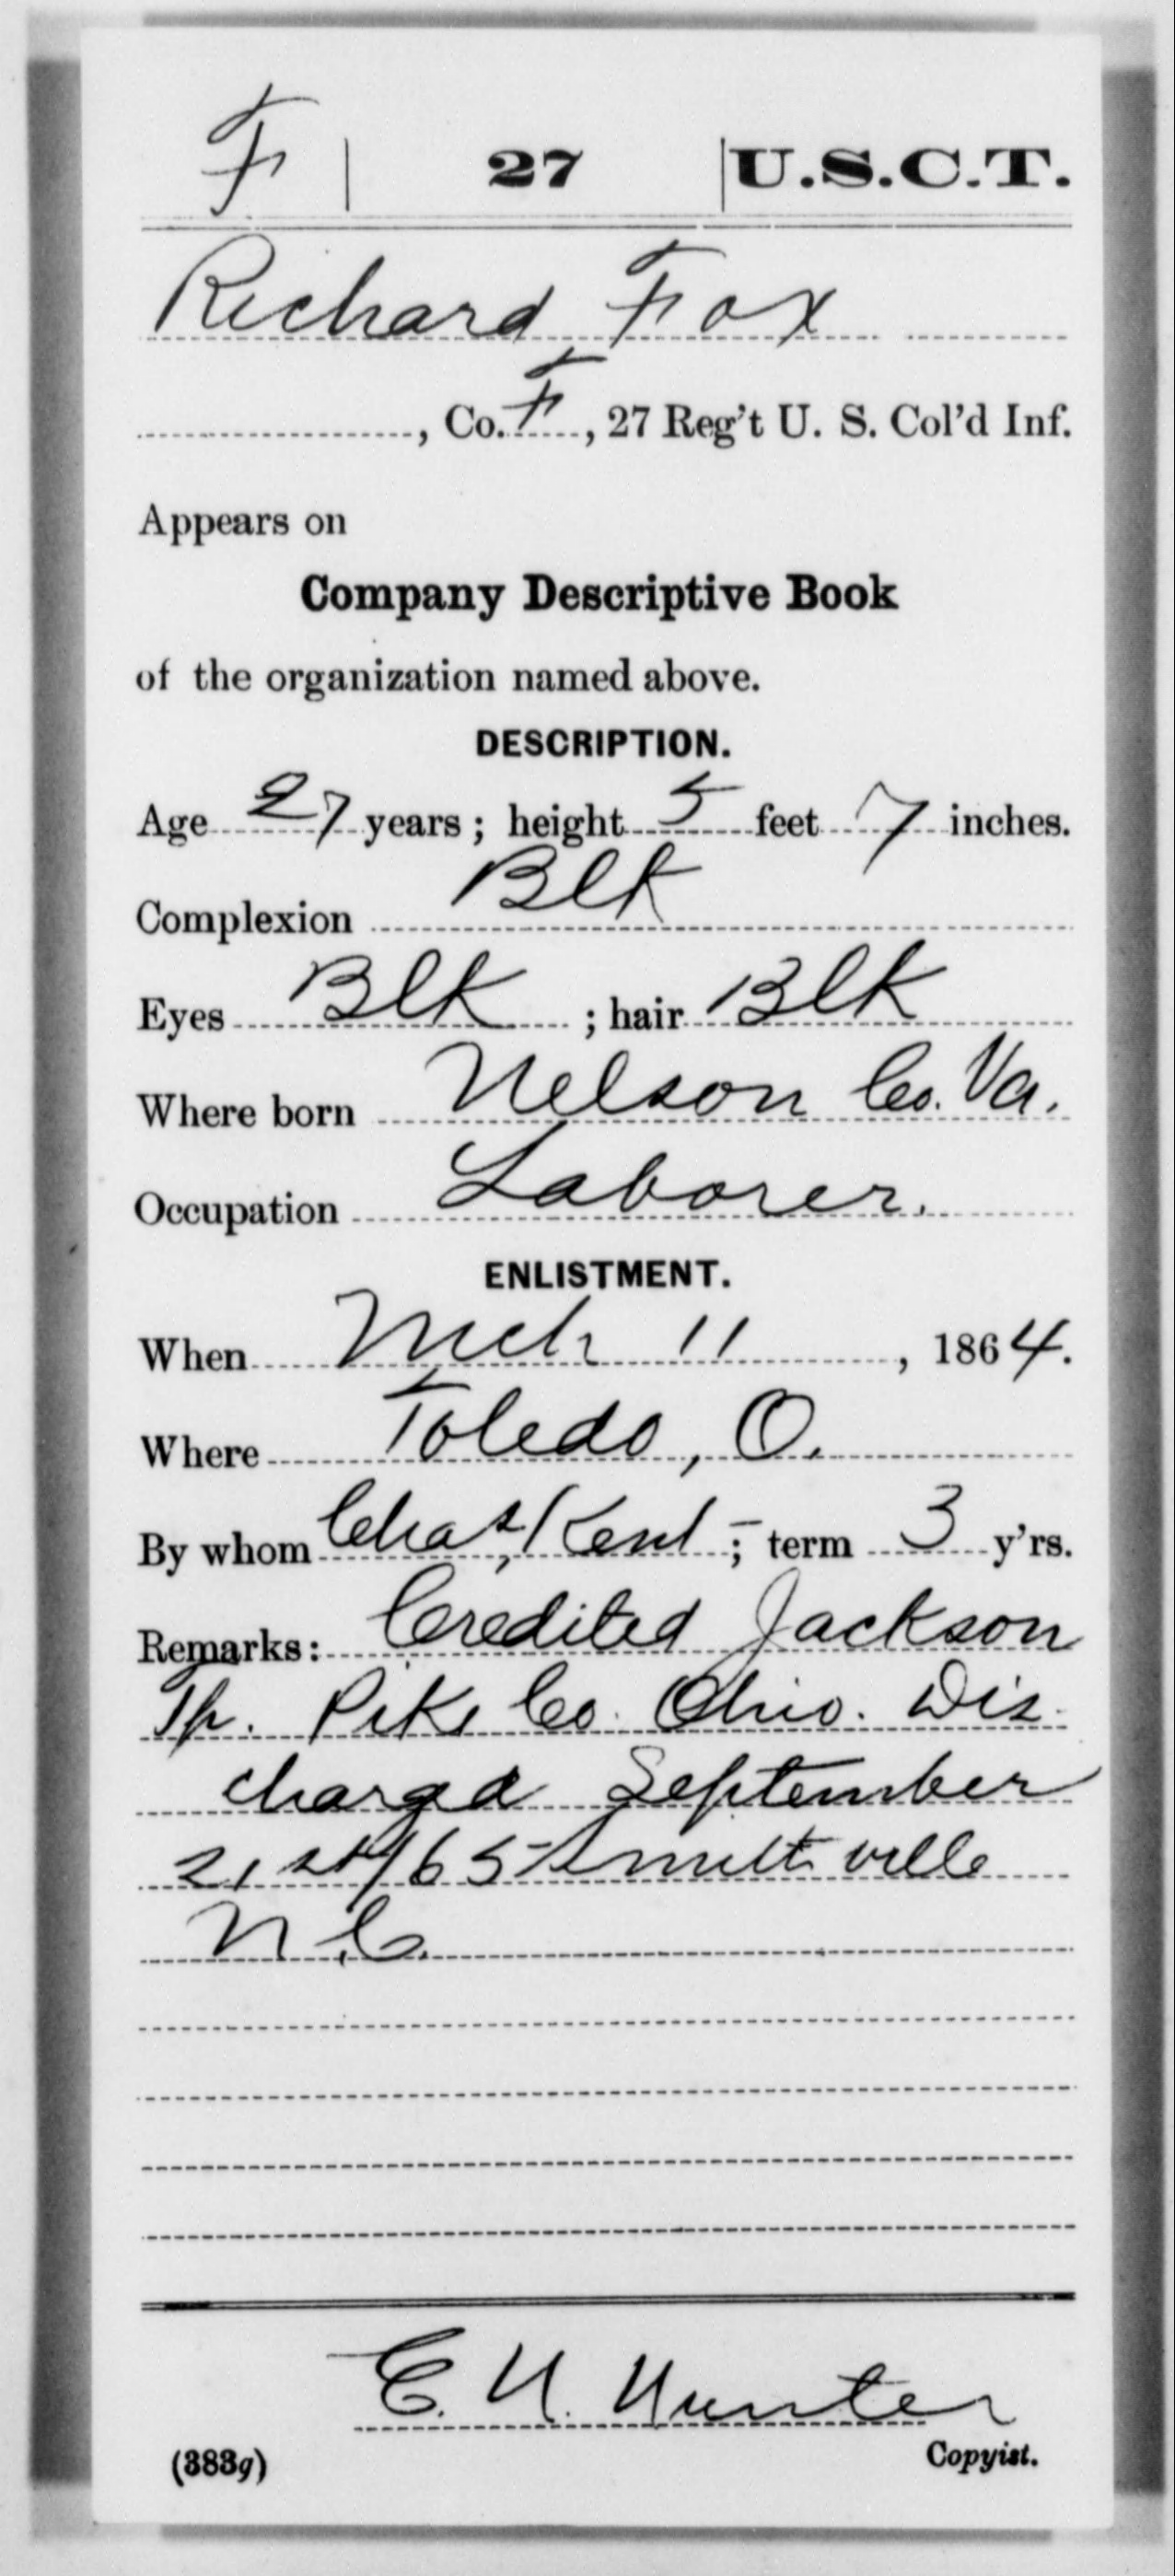 F 27 U.S.C.T.
Richard Fox
, Co. F, 27 Reg't U. S. Col'd Inf.
Appears on
Company Descriptive Book
of the organization named above.
DESCRIPTION.
Age 27 years; height 5 feet 7 inches.
Complexion Blk
Eyes Blk; hair Blk
Where born Nelson Co. Va.
Occupation Laborer.
ENLISTMENT.
When Mch 11, 1864.
Where Toledo, O.
By whom Chas. Kent; term 3 y'rs.
Remarks: Credited Jackson
Tp. Pike Co. Ohio. Dis-
charged September
21st/65 Smithville
N.C.
Hunter
Copyist.
(383g)